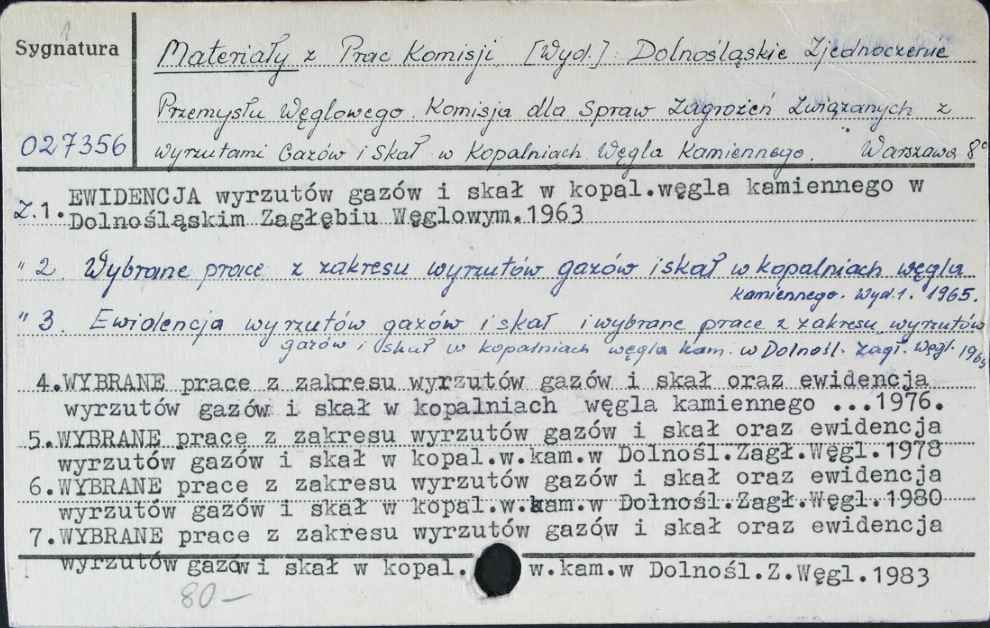 Sygnatura
Materiały z Prac Komisji [Wyd.] Dolnośląskie Zjednoczenie
Przemysłu Węglowego. Komisja dla Spraw Zagrożeń Związanych z
027356
wyrzutami Gazów i Skał w Kopalniach Węgla Kamiennego. Warszawa 8°
EWIDENCJA wyrzutów gazów i skał w kopal.węgla kamiennego w
Z.1. Dolnośląskim Zagłębiu Węglowym.1963
" 2. Wybrane prace z zakresu wyrzutów gazów i skał w kopalniach węgla
kamiennego. Wyd.1. 1965.
" 3. Ewidencja wyrzutów gazów i skał i wybrane prace z zakresu wyrzutów
gazów i skał w kopalniach węgla kam. w Dolnośl. Zagł. Węgl.
4.WYBRANE prace z zakresu wyrzutów gazów i skał oraz ewidencja
wyrzutów gazów i skał w kopalniach węgla kamiennego ...1976.
5.WYBRANE prace z zakresu wyrzutów gazów i skał oraz ewidencja
wyrzutów gazów i skał w kopal.w.kam.w Dolnośl.Zagł.Węgl.1978
6.WYBRANE prace z zakresu wyrzutów gazów i skał oraz ewidencja
wyrzutów gazów i skał w kopal.w.kam.w Dolnośl.Zagł.Węgl.1980
7.WYBRANE prace z zakresu wyrzutów gazów i skał oraz ewidencja
wyrzutów gazów i skał w kopal. w.kam.w Dolnośl.Z.Węgl.1983
80-